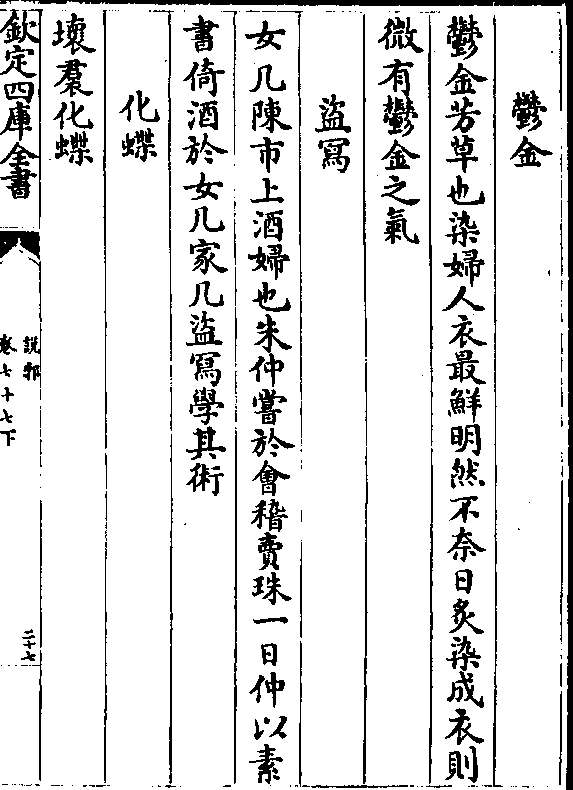 鬱金
鬱金芳草也染婦人衣最鮮明然不奈日炙染成衣則
微有鬱金之氣
盜冩
女几陳市上酒婦也朱仲嘗於會稽賣珠一日仲以素
書倚酒於女几家几盜冩學其術
化蝶
壞裠化蝶
欽定四庫全書
說郛
卷七十七下
二十七